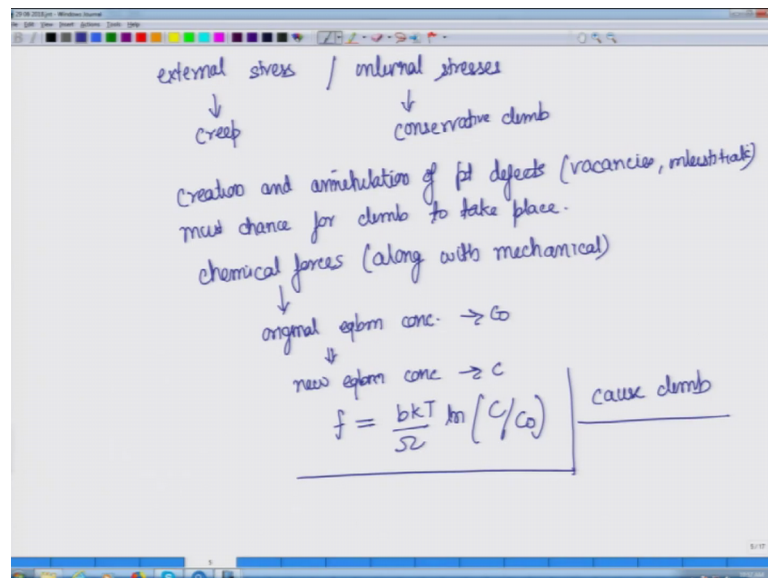 29-08-2018.jnt - Windows Journal
File Edit View Insert Actions Tools Help
external stress / internal stresses
↓ ↓
creep conservative climb
creation and annihilation of pt defects (vacancies, interstitials)
must chance for climb to take place.
chemical forces (along with mechanical)
↓
original eqbm conc. → C0
⇓
new eqbm conc → C
f = bkT/Ω ln (C/C0) cause climb
5/17
5